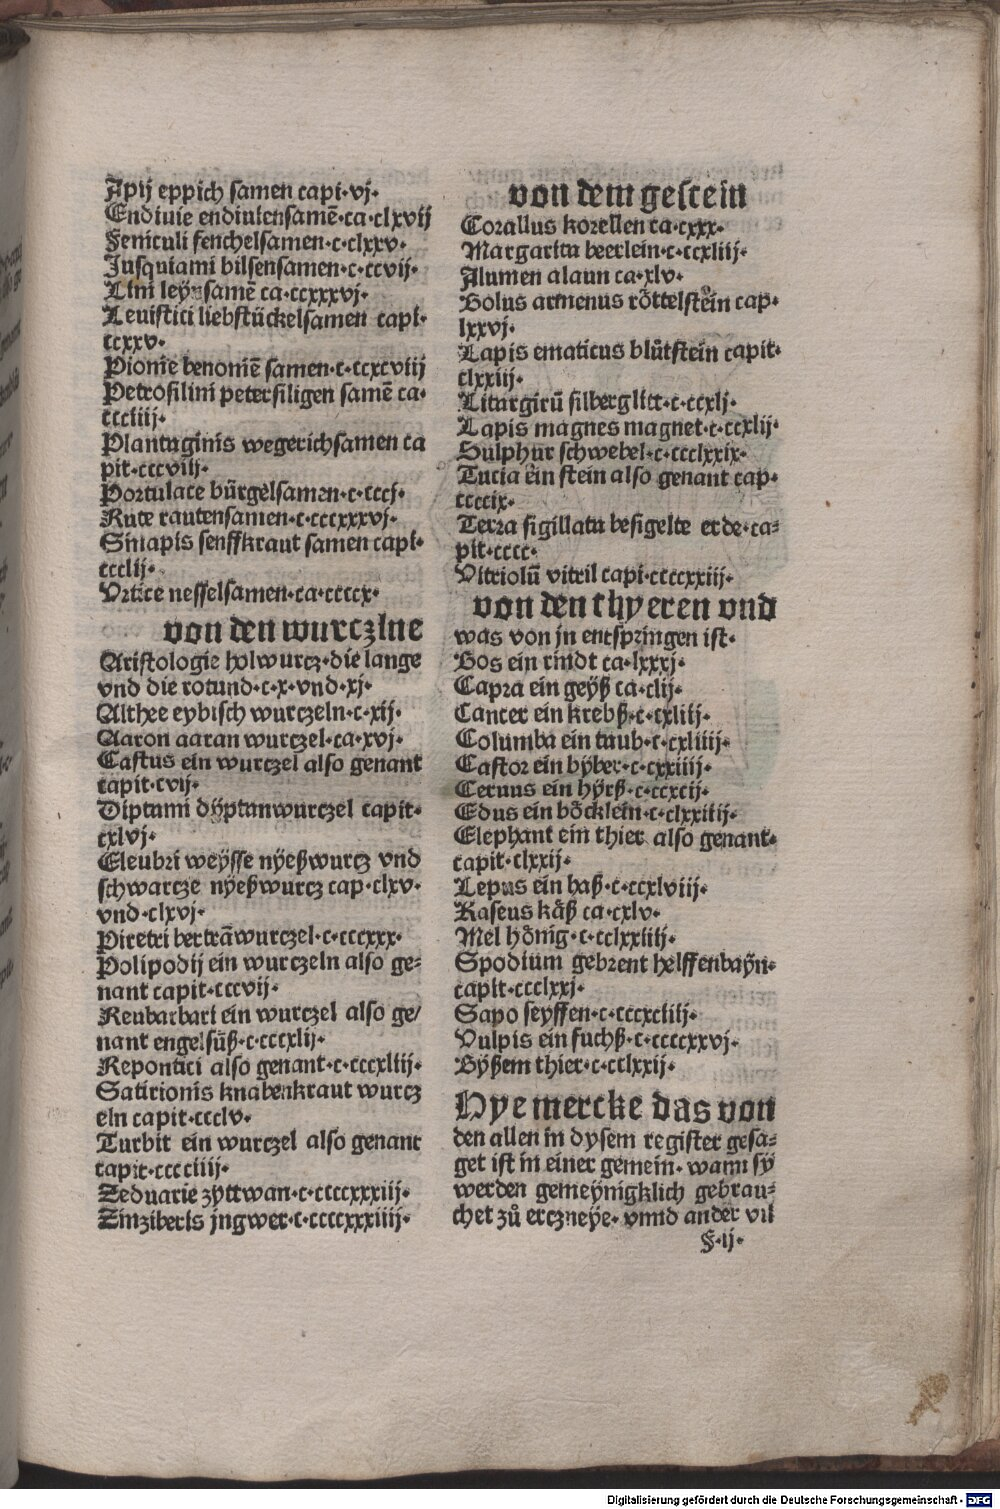 Apij eppich samen capi·vj·
Endiuie endiuiensamē·ca·clxvij
Feniculi fenchelsamen·c·clxxv·
Jusquiami bilsensamen·c·ccvij·
Lini leÿnsamē ca·ccxxxvj·
Leuistici liebstückelsamen capi·
ccxxv·
Pionie benoniē samen·c·ccxcviij
Petrosilini petersiligen samē ca·
ccciiij·
Plantaginis wegerichsamen ca
pit·cccviij·
Portulace bürgelsamen·c·cccj·
Rute rautensamen·c·cccxxxvj·
Sinapis senffkraut samen capi·
ccclij·
Vrtice nesselsamen·ca·ccccx·
von den wurczlne
Aristologie holwurcz·die lange
vnd die rotund·c·x·vnd·xj·
Althee eybisch wurczeln·c·xij·
Aaron aaran wurczel·ca·xvj·
Castus ein wurczel also genant
capit·cvij·
Diptami dÿptanwurczel capit·
cxlvj·
Eleubri weÿsse nÿeßwurcz vnd
schwarcze nÿeßwurcz cap·clxv·
vnd·clxvj·
Piretri bertrāwurczel·c·cccxxx·
Polipodij ein wurczeln also ge⸗
nant capit·cccvij·
Reubarbari ein wurczel also ge/
nant engelsüß·c·cccxlij·
Repontici also genant·c·cccxliij·
Satirionis knabenkraut wurcz
eln capit·ccclv·
Turbit ein wurczel also genant
capit·cccciiij·
Zeduarie zyttwan·c·ccccxxxiij·
Zinziberis jngwer·c·ccccxxxiiij·
von dem gestein
Corallus korellen ca·cxxx·
Margarita beerlein·c·ccxliij·
Alumen alaun ca·xlv·
Bolus armenus röttelstein cap·
lxxvj·
Lapis ematicus blůtstein capit·
clxxiij·
Litargirū silberglitt·c·ccxlj·
Lapis magnes magnet·c·ccxlij·
Sulphur schwebel·c·ccclxxix·
Tucia ein stein also genant cap·
ccccix·
Terra sigillata besigelte erde·ca⸗
pit·cccc·
Vitriolū vitril capi·ccccxxiij·
von den thyeren vnd
was von jn entspringen ist·
Bos ein rindt ca·lxxxj·
Capra ein geÿß ca·clij·
Cancer ein krebß·c·cxliij·
Columba ein taub·c·cxliiij·
Castor ein bÿber·c·cxxiiij·
Ceruus ein hÿrß·c·ccxcij·
Edus ein böcklein·c·clxxiiij·
Elephant ein thier also genant·
capit·clxxij·
Lepus ein haß·c·ccxlviij·
Kaseus käß ca·cxlv·
Mel hönig·c·cclxxiiij·
Spodium gebrent helffenbaÿn·
capit·ccclxxj·
Sapo seyffen·c·cccxciiij·
Vulpis ein fuchß·c·ccccxxvj·
Bÿßem thier·c·cclxxij·
Hye mercke das von
den allen in dysem register gesa⸗
get ist in einer gemein·wann sÿ
werden gemeÿnigklich gebrau⸗
chet zů erczneÿe·vnnd ander vil
§·ij·
Digitalisierung gefördert durch die Deutsche Forschungsgemeinschaft - DFG